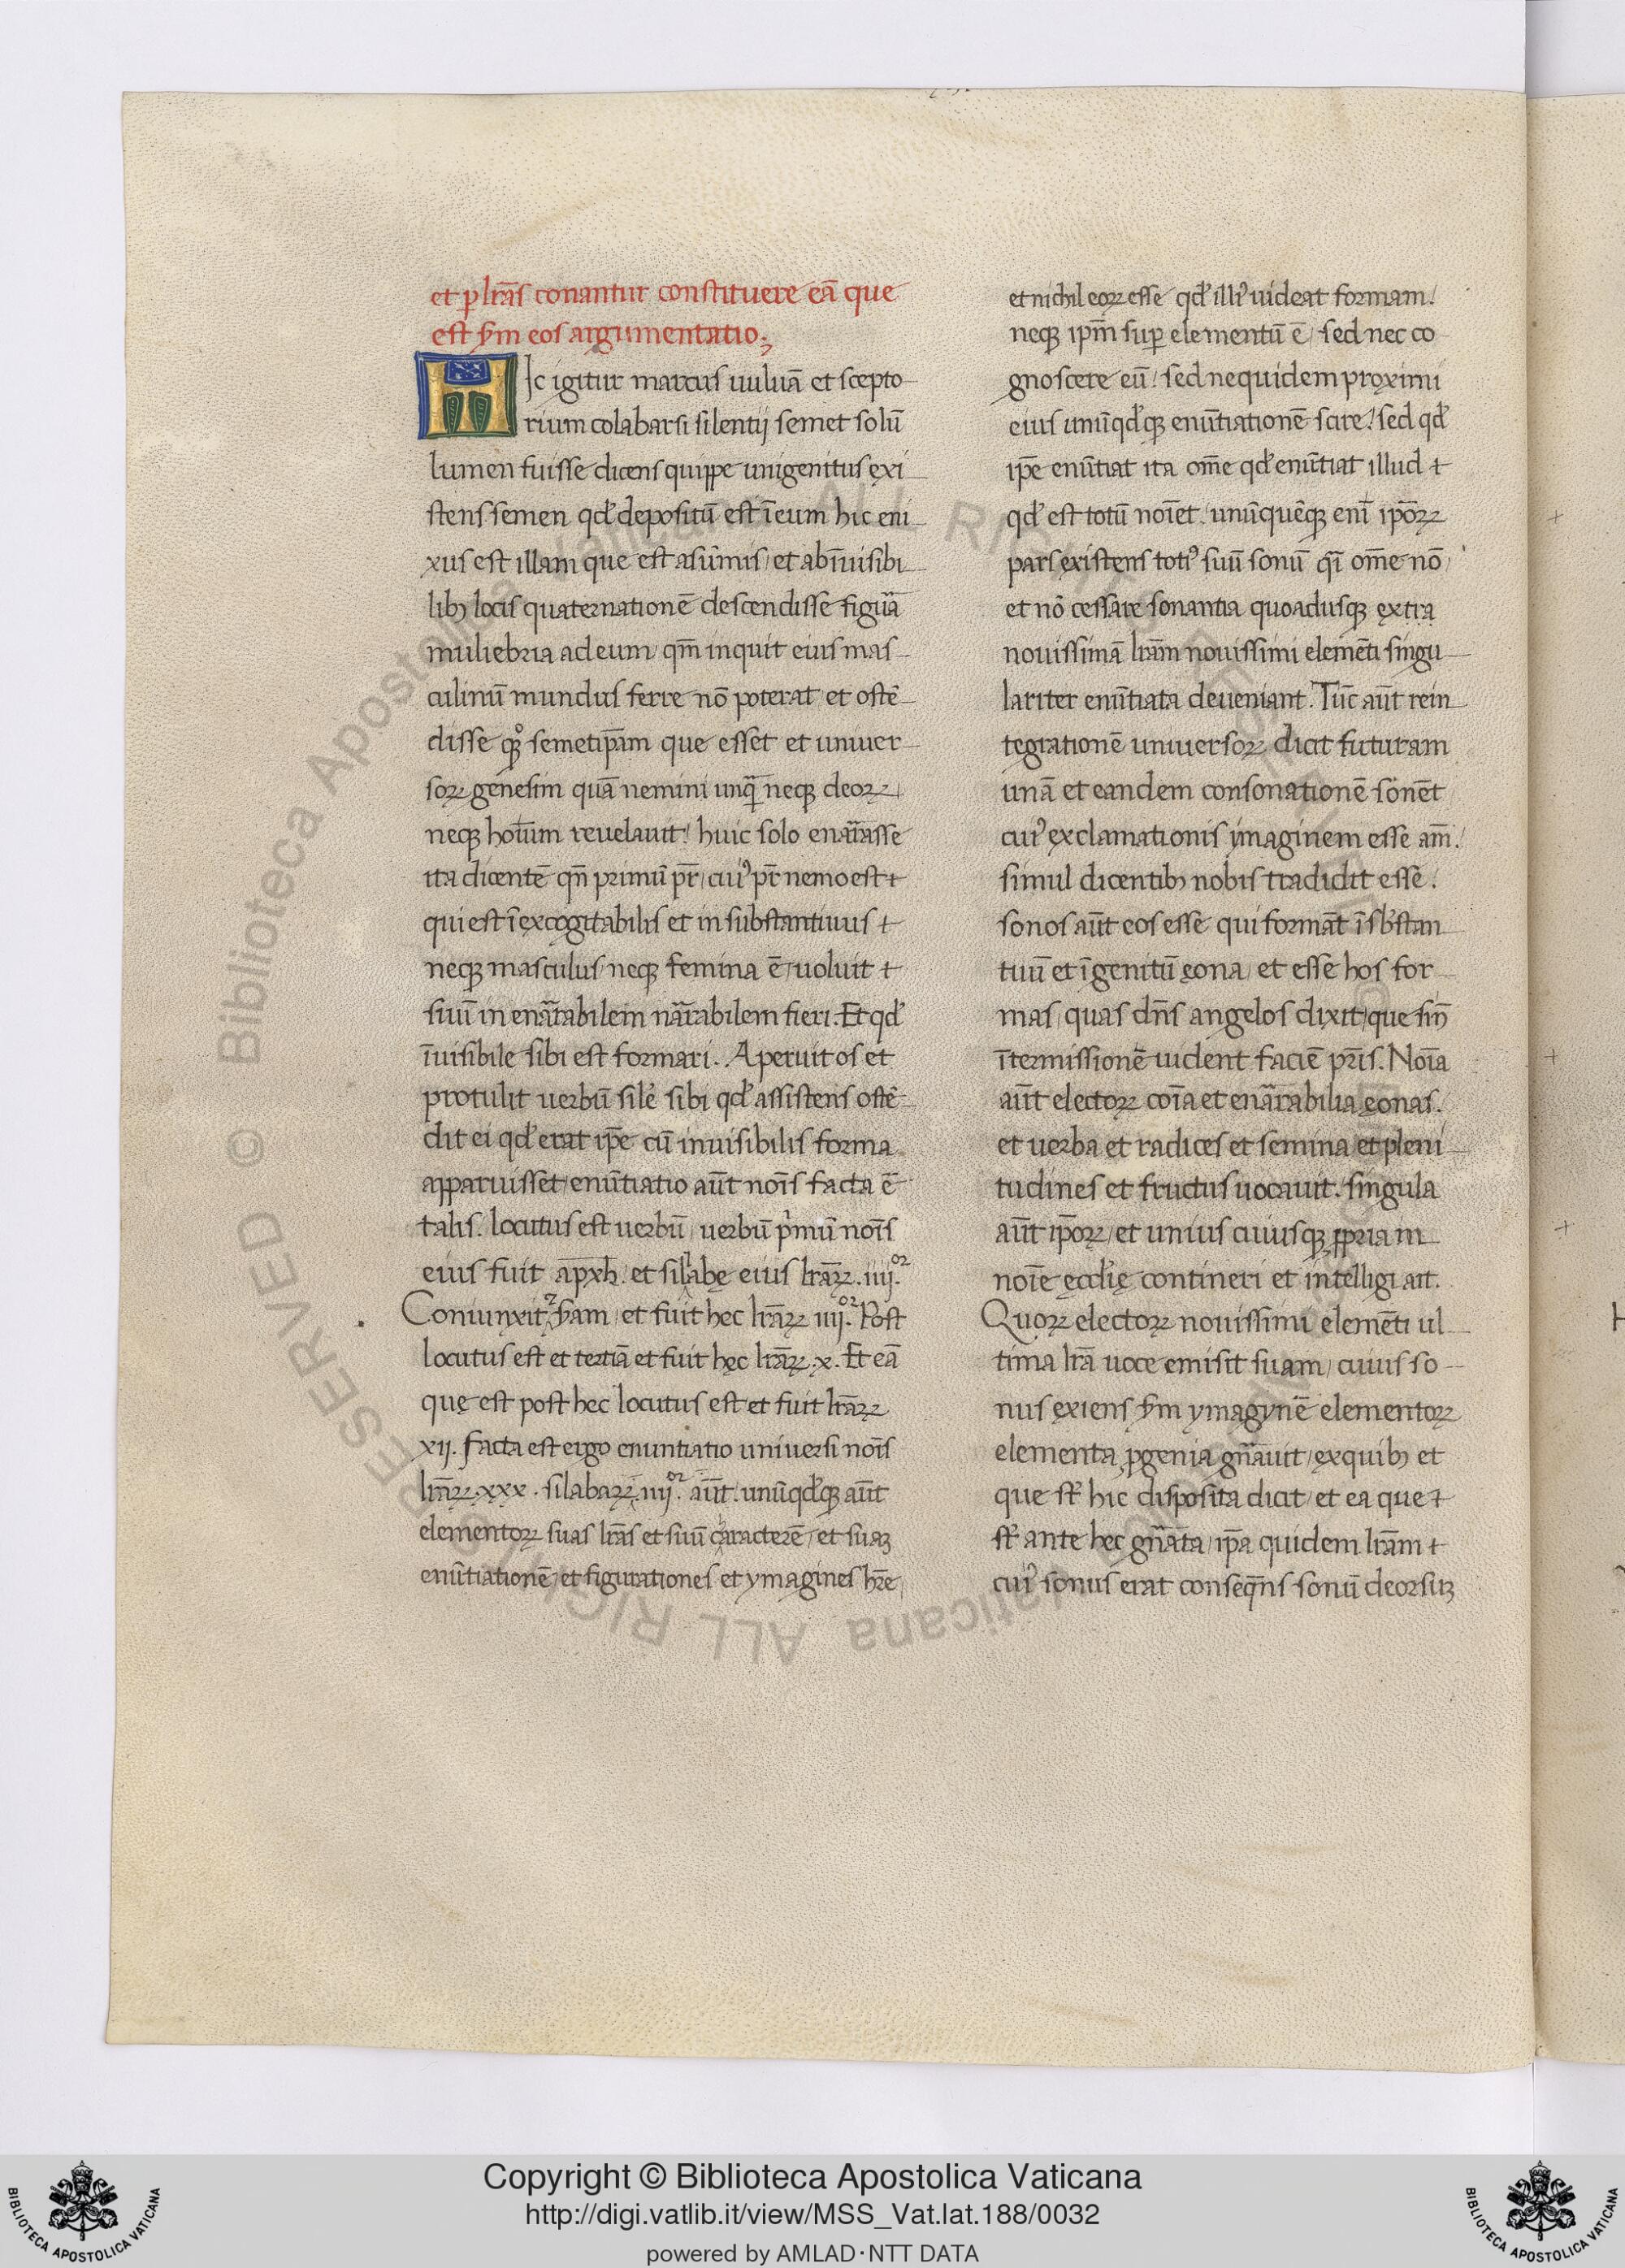 et p lr̄as conantur constituere eā que
est s̄m eos argumentatio;
Hic igitur marcus uuluā et scepto
rium colabarsi silentij semet solū
lumen fuisse dicens quippe unigenitus exi
stens semen qd' depositū est ī eum hic eni
xus est illam que est asūmis / et ab īuisibi
lib; locis quaternationē descendisse figurā
muliebria ad eum / qm̄ inquit eius mas
culinū mundus ferre nō poterat et ostē
disse qq̊ semetip̄am que esset et uniuer
soꝝ genesim quā nemini unq̄ neqꝫ deoꝝ /
neqꝫ hoīum reuelauit! huic solo enar̄asse
ita dicentē qn̄ primū pr̄ / cuiꝰ pr̄ nemo est +
qui est ī excogitabilis et in substantiuus +
neqꝫ masculus / neqꝫ femina ē / uoluit +
suū in enar̄abilem nar̄abilem fieri. Et qd'
īuisibile sibi est formari. Aperuit os et
protulit uerbū sile sibi qd' assistens ostē
dit ei qd' erat ip̄e cū inuisibilis forma
apparuisset / enūtiatio aūt noīs facta ē
talis. locutus est uerbū / uerbū pͥmū noīs
eius fuit apxh. et sillabę eius lr̄aꝝ .iiij.oꝛ
Coniunxit ꝫ s̄am / et fuit hec lr̄aꝝ iiij.oꝛ Post
locutus est et tertiā et fuit hęc lr̄aꝝ .x. Et eā
que est post hec locutus est et fuit lr̄aꝝ
xij. facta est ergo enuntiatio uniuersi noīs
lr̄aꝝ .xxx. silabaꝝ .iiij.oꝛ aūt. unūqd'qꝫ aūt
elementoꝝ suas lr̄as et suū caracterē / et suaꝫ
enūtiationē / et figurationes et ymagines hr̄e /
et nichil eoꝝ esse qd' illiꝰ uideat formam!
neqꝫ ip̄m sup elementū ē / sed nec co
gnoscere eū! sed ne quidem proximi
eius unūqd'qꝫ enūtiationē scire! sed qd'
ip̄e enūtiat ita om̄e qd' enūtiat illud +
qd' est totū noīet. unūquēqꝫ enī ip̄oꝝ
pars existens totiꝰ suū sonū qī om̄e nō /
et nō cessare sonantia quoadusqꝫ extra
nouissimā lr̄am nouissimi elemēti singu
lariter enūtiata deueniant. Tūc aūt rein
tegrationē uniuersoꝝ dicit futuram
unā et eandem consonationē sonēt
cuiꝰ exclamationis ymaginem esse am̄.
simul dicentib; nobis tradidit esse!
sonos aūt eos esse qui formāt īsb'stan
tiuū et īgenitū eona / et esse hos for
mas / quas dn̄s angelos dixit / que sin̄
ītermissionē uident faciē pr̄is. Noīa
aūt electoꝝ coīa et enar̄abilia eonas.
et uerba et radices et semina et pleni
tudines et fructus uocauit. singula
aūt ip̄oꝝ / et unius cuiusqꝫ ꝓpriam
noīe ęccl'ię contineri et intelligi ait.
Quoꝝ electoꝝ nouissimi elemēti ul
tima lr̄a uoce emisit suam / cuius so
nus exiens s̄m ymagynē elementoꝝ
elementa ꝓgenia gn̄auit / ex quib; et
que st̄ hic disposita dicit / et ea que +
st̄ ante hec gn̄ata / ip̄a quidem lr̄am +
cuiꝰ sonus erat conseqn̄s sonū deorsuꝫ
Copyright © Biblioteca Apostolica Vaticana
http://digi.vatlib.it/view/MSS_Vat.lat.188/0032
powered by AMLAD·NTT DATA